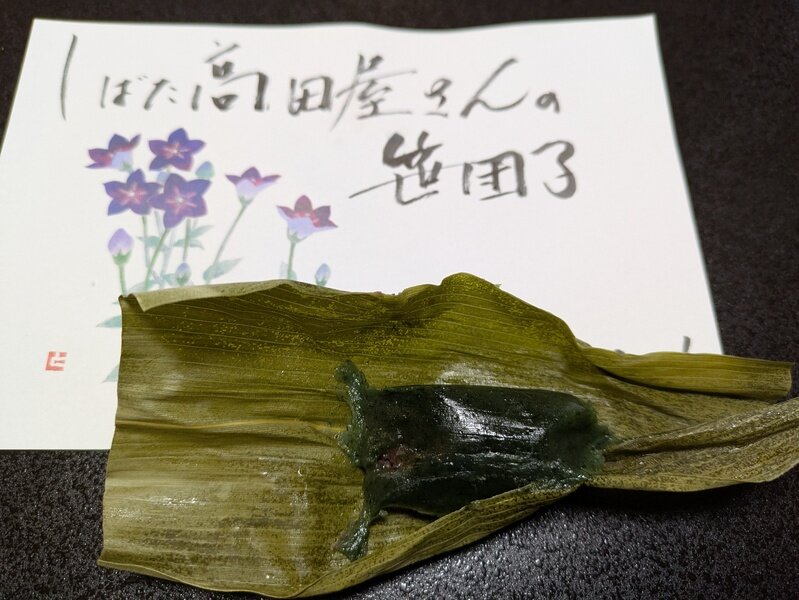 しばた高田屋さんの
笹団子